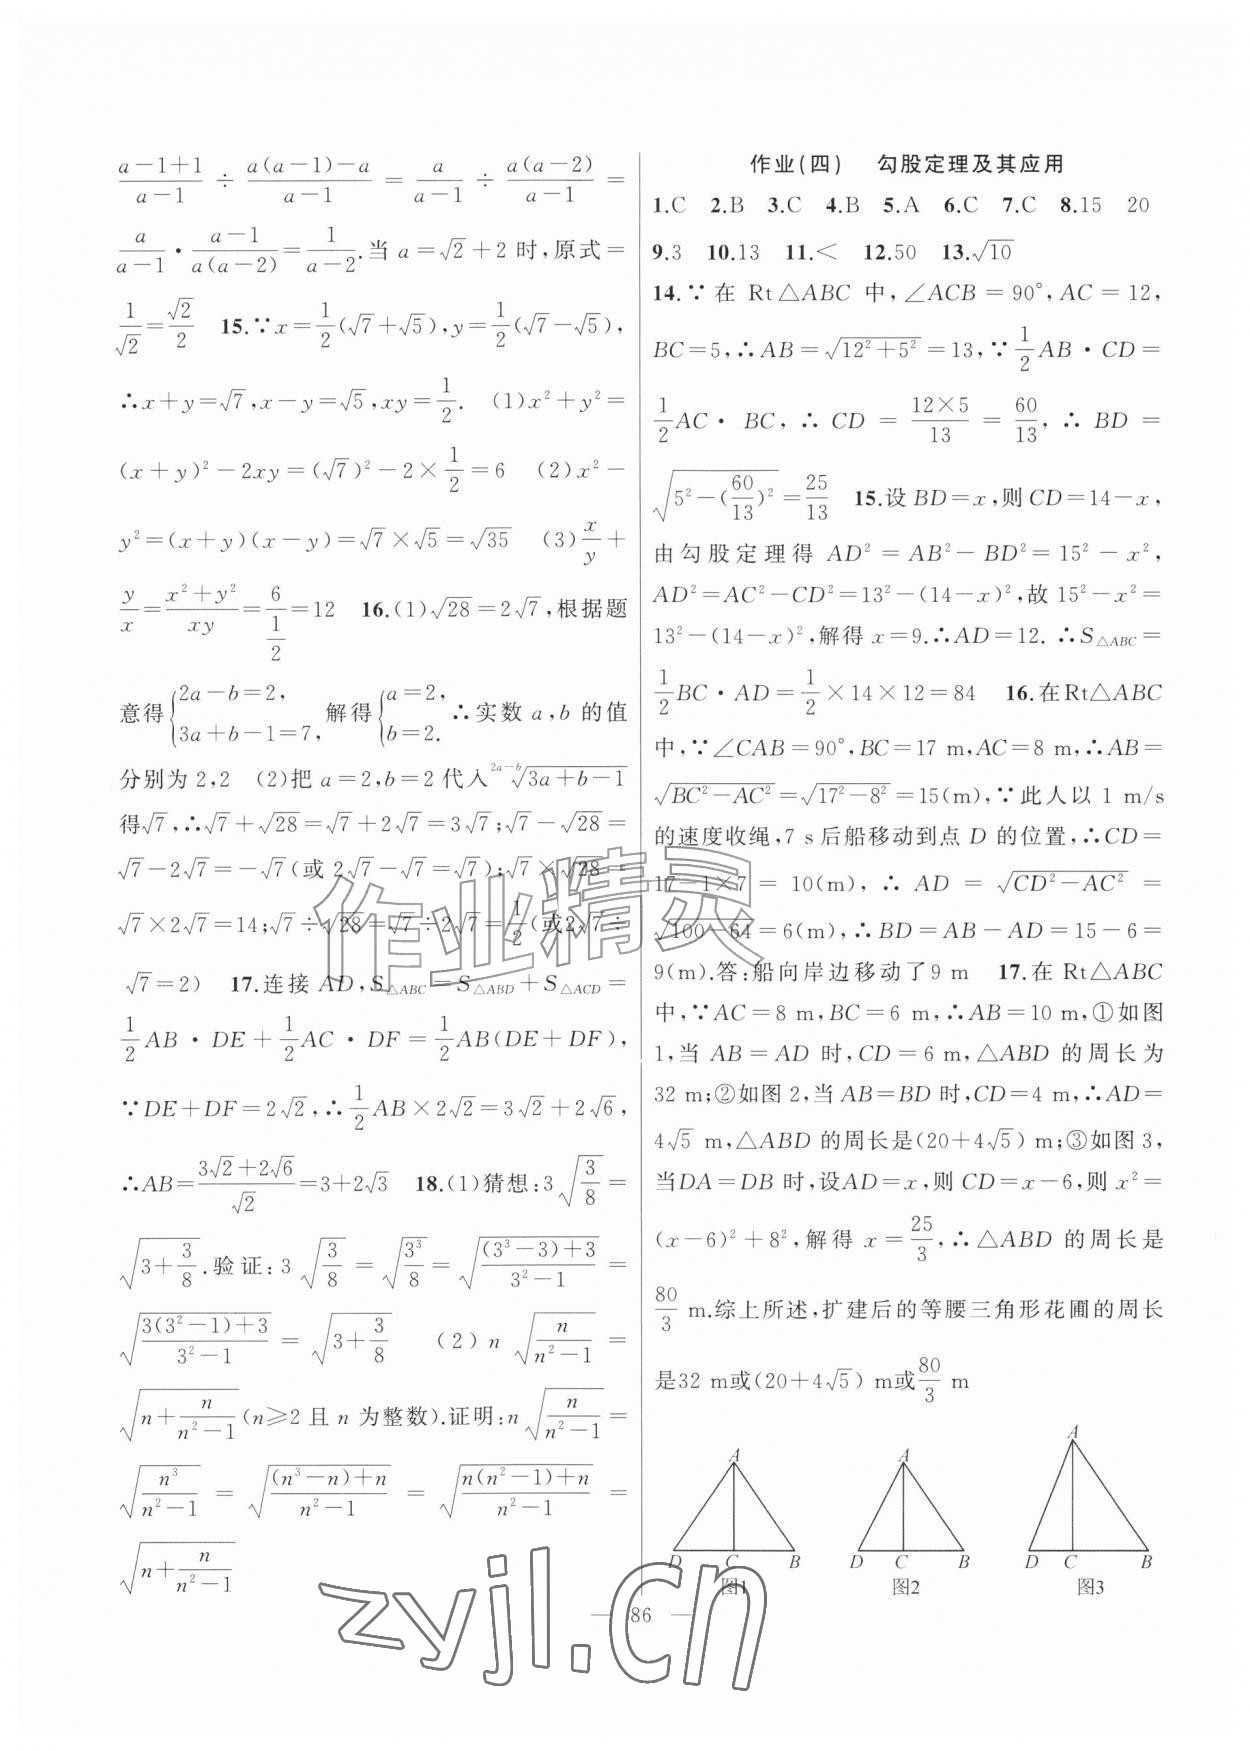 (a-1+1)/(a-1) ÷ (a(a-1)-a)/(a-1) = a/(a-1) ÷ (a(a-2))/(a-1) =
a/(a-1) · (a-1)/(a(a-2)) = 1/(a-2).当 a=√2+2 时,原式=
1/√2=√2/2 15.∵x=1/2(√7+√5),y=1/2(√7-√5),
∴x+y=√7,x-y=√5,xy=1/2. (1)x²+y²=
(x+y)²-2xy=(√7)²-2×1/2=6 (2)x²-
y²=(x+y)(x-y)=√7×√5=√35 (3)x/y+
y/x=(x²+y²)/(xy)=6/(1/2)=12 16.(1)√28=2√7,根据题
意得{2a-b=2, 3a+b-1=7, 解得{a=2, b=2. ∴实数 a,b 的值
分别为 2,2 (2)把 a=2,b=2 代入 ²ᵃ⁻ᵇ√(3a+b-1)
得√7,∴√7+√28=√7+2√7=3√7;√7-√28=
√7-2√7=-√7(或 2√7-√7=√7);√7×√28=
√7×2√7=14;√7÷√28=√7÷2√7=1/2(或2√7÷
√7=2) 17.连接 AD,S△ABC=S△ABD+S△ACD=
1/2AB·DE+1/2AC·DF=1/2AB(DE+DF),
∵DE+DF=2√2,∴1/2AB×2√2=3√2+2√6,
∴AB=(3√2+2√6)/√2=3+2√3 18.(1)猜想:3√(3/8)=
√(3+3/8).验证:3√(3/8)=√(3³/8)=√(((3³-3)+3)/(3²-1))=
√((3(3²-1)+3)/(3²-1))=√(3+3/8) (2)n√(n/(n²-1))=
√(n+n/(n²-1))(n≥2 且 n 为整数).证明:n√(n/(n²-1))=
√(n³/(n²-1))=√(((n³-n)+n)/(n²-1))=√((n(n²-1)+n)/(n²-1))=
√(n+n/(n²-1))
作业(四) 勾股定理及其应用
1.C 2.B 3.C 4.B 5.A 6.C 7.C 8.15 20
9.3 10.13 11.< 12.50 13.√10
14.∵在 Rt△ABC 中,∠ACB=90°,AC=12,
BC=5,∴AB=√(12²+5²)=13,∵1/2AB·CD=
1/2AC·BC,∴CD=(12×5)/13=60/13,∴BD=
√(5²-(60/13)²)=25/13 15.设 BD=x,则 CD=14-x,
由勾股定理得 AD²=AB²-BD²=15²-x²,
AD²=AC²-CD²=13²-(14-x)²,故 15²-x²=
13²-(14-x)²,解得 x=9.∴AD=12.∴S△ABC=
1/2BC·AD=1/2×14×12=84 16.在Rt△ABC
中,∵∠CAB=90°,BC=17 m,AC=8 m,∴AB=
√(BC²-AC²)=√(17²-8²)=15(m),∵此人以 1 m/s
的速度收绳,7 s后船移动到点 D 的位置,∴CD=
17-1×7=10(m),∴AD=√(CD²-AC²)=
√(100-64)=6(m),∴BD=AB-AD=15-6=
9(m).答:船向岸边移动了9 m 17.在 Rt△ABC
中,∵AC=8 m,BC=6 m,∴AB=10 m,①如图
1,当 AB=AD 时,CD=6 m,△ABD 的周长为
32 m;②如图 2,当 AB=BD 时,CD=4 m,∴AD=
4√5 m,△ABD 的周长是(20+4√5) m;③如图 3,
当DA=DB 时,设AD=x,则 CD=x-6,则 x²=
(x-6)²+8²,解得 x=25/3,∴△ABD 的周长是
80/3 m.综上所述,扩建后的等腰三角形花圃的周长
是32 m或(20+4√5) m或80/3 m
A
D C B
图1
A
D C B
图2
A
D C B
图3
86
作业精灵
zyjl.cn